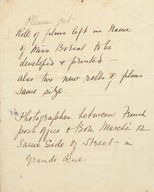 Please get
Roll of films left in Name
of Miss Boreat to be
developed & printed —
also two new rolls of films
same size.
Photographer between French
post office & Bon Marché on
Same Side of Street — in
Grande Rue.